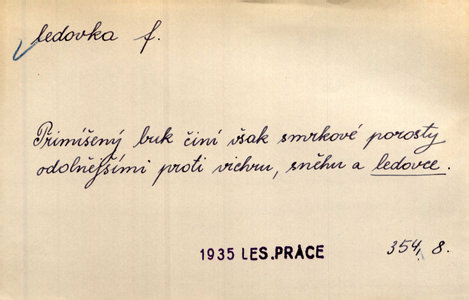 ledovka f.
Přimíšený buk činí však smrkové porosty
odolnějšími proti vichru, sněhu a ledovce.
1935 LES.PRÁCE 354, 8.